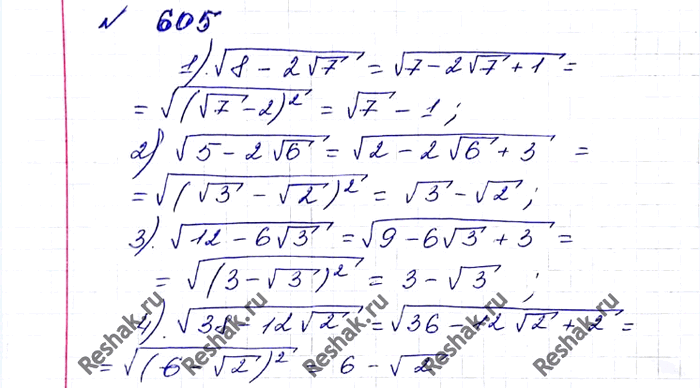 № 605
1). √(8 - 2√7) = √(7 - 2√7 + 1) =
= √((√7 - 2)²) = √7 - 1;
2) √(5 - 2√6) = √(2 - 2√6 + 3) =
= √((√3 - √2)²) = √3 - √2;
3). √(12 - 6√3) = √(9 - 6√3 + 3) =
= √((3 - √3)²) = 3 - √3;
4). √(38 - 12√2) = √(36 - 12√2 + 2) =
= √((6 - √2)²) = 6 - √2
Reshak.ru
Reshak.ru
Reshak.ru
Reshak.ru
Reshak.ru